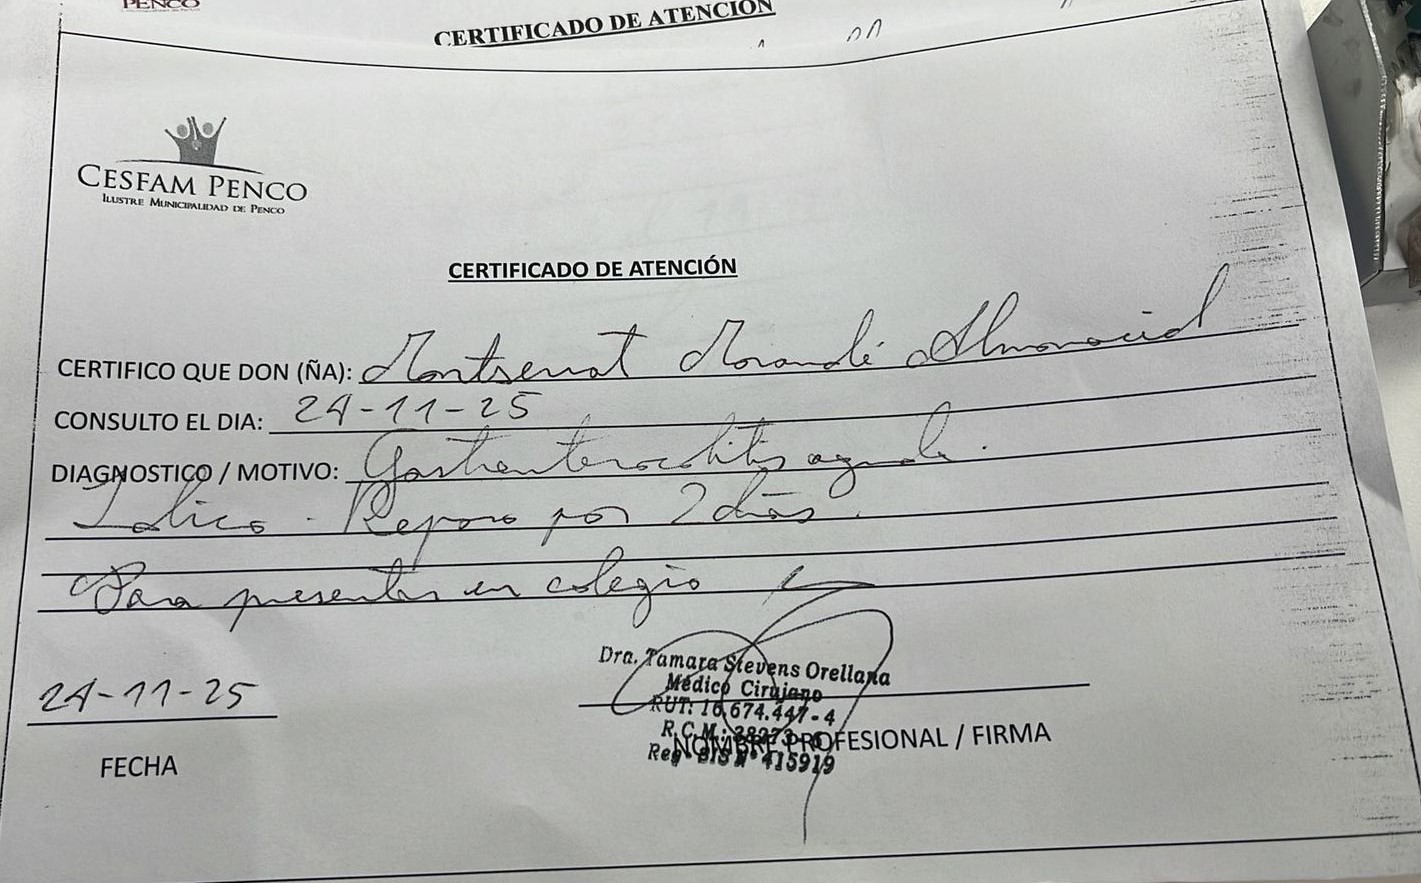 PENCO
CERTIFICADO DE ATENCIÓN
CESFAM PENCO
ILUSTRE MUNICIPALIDAD DE PENCO
CERTIFICADO DE ATENCIÓN
CERTIFICO QUE DON (ÑA): Montserrat Morandé Almonacid
CONSULTO EL DIA: 24-11-25
DIAGNOSTICO / MOTIVO: Gastroenterocolitis aguda.
Reposo por 2 días.
Para presentar en colegio
Dra. Tamara Stevens Orellana
Médico Cirujano
24-11-25
RUT: 16.674.447-4
R.C.M.:
NOMBRE PROFESIONAL / FIRMA
FECHA
Reg. SIS N° 415919